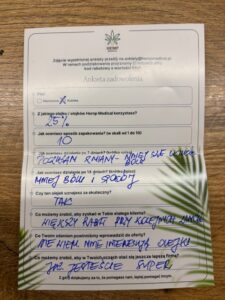 HEMP
Zdjęcie wypełnionej ankiety prześlij na
W ramach podziękowania przyznamy Ci
kod rabatowy o wartości
Ankieta zadowolenia
Płeć
Kobieta
Z jakiego olejku / olejków Hemp Medical korzystasz?
25%
Jak oceniasz sposób zapakowania? (w skali od 1 do 10)
10
Jak oceniasz działanie po 7 dniach?
MNIEJ BÓLU I SPOKÓJ
Czy ten olejek uznajesz za skuteczny?
TAK
Co możemy zrobić, aby zyskać w Tobie stałego klienta?
WIĘKSZY RABAT PRZY KOLEJNYCH
Co Twoim zdaniem powinniśmy wprowadzić do oferty?
NIE WIEM MNIE INTERESUJĄ OLEJKI
Co możemy zrobić, aby w Twoich oczach stać się jeszcze lepszą firmą?
JUŻ JESTEŚCIE SUPER